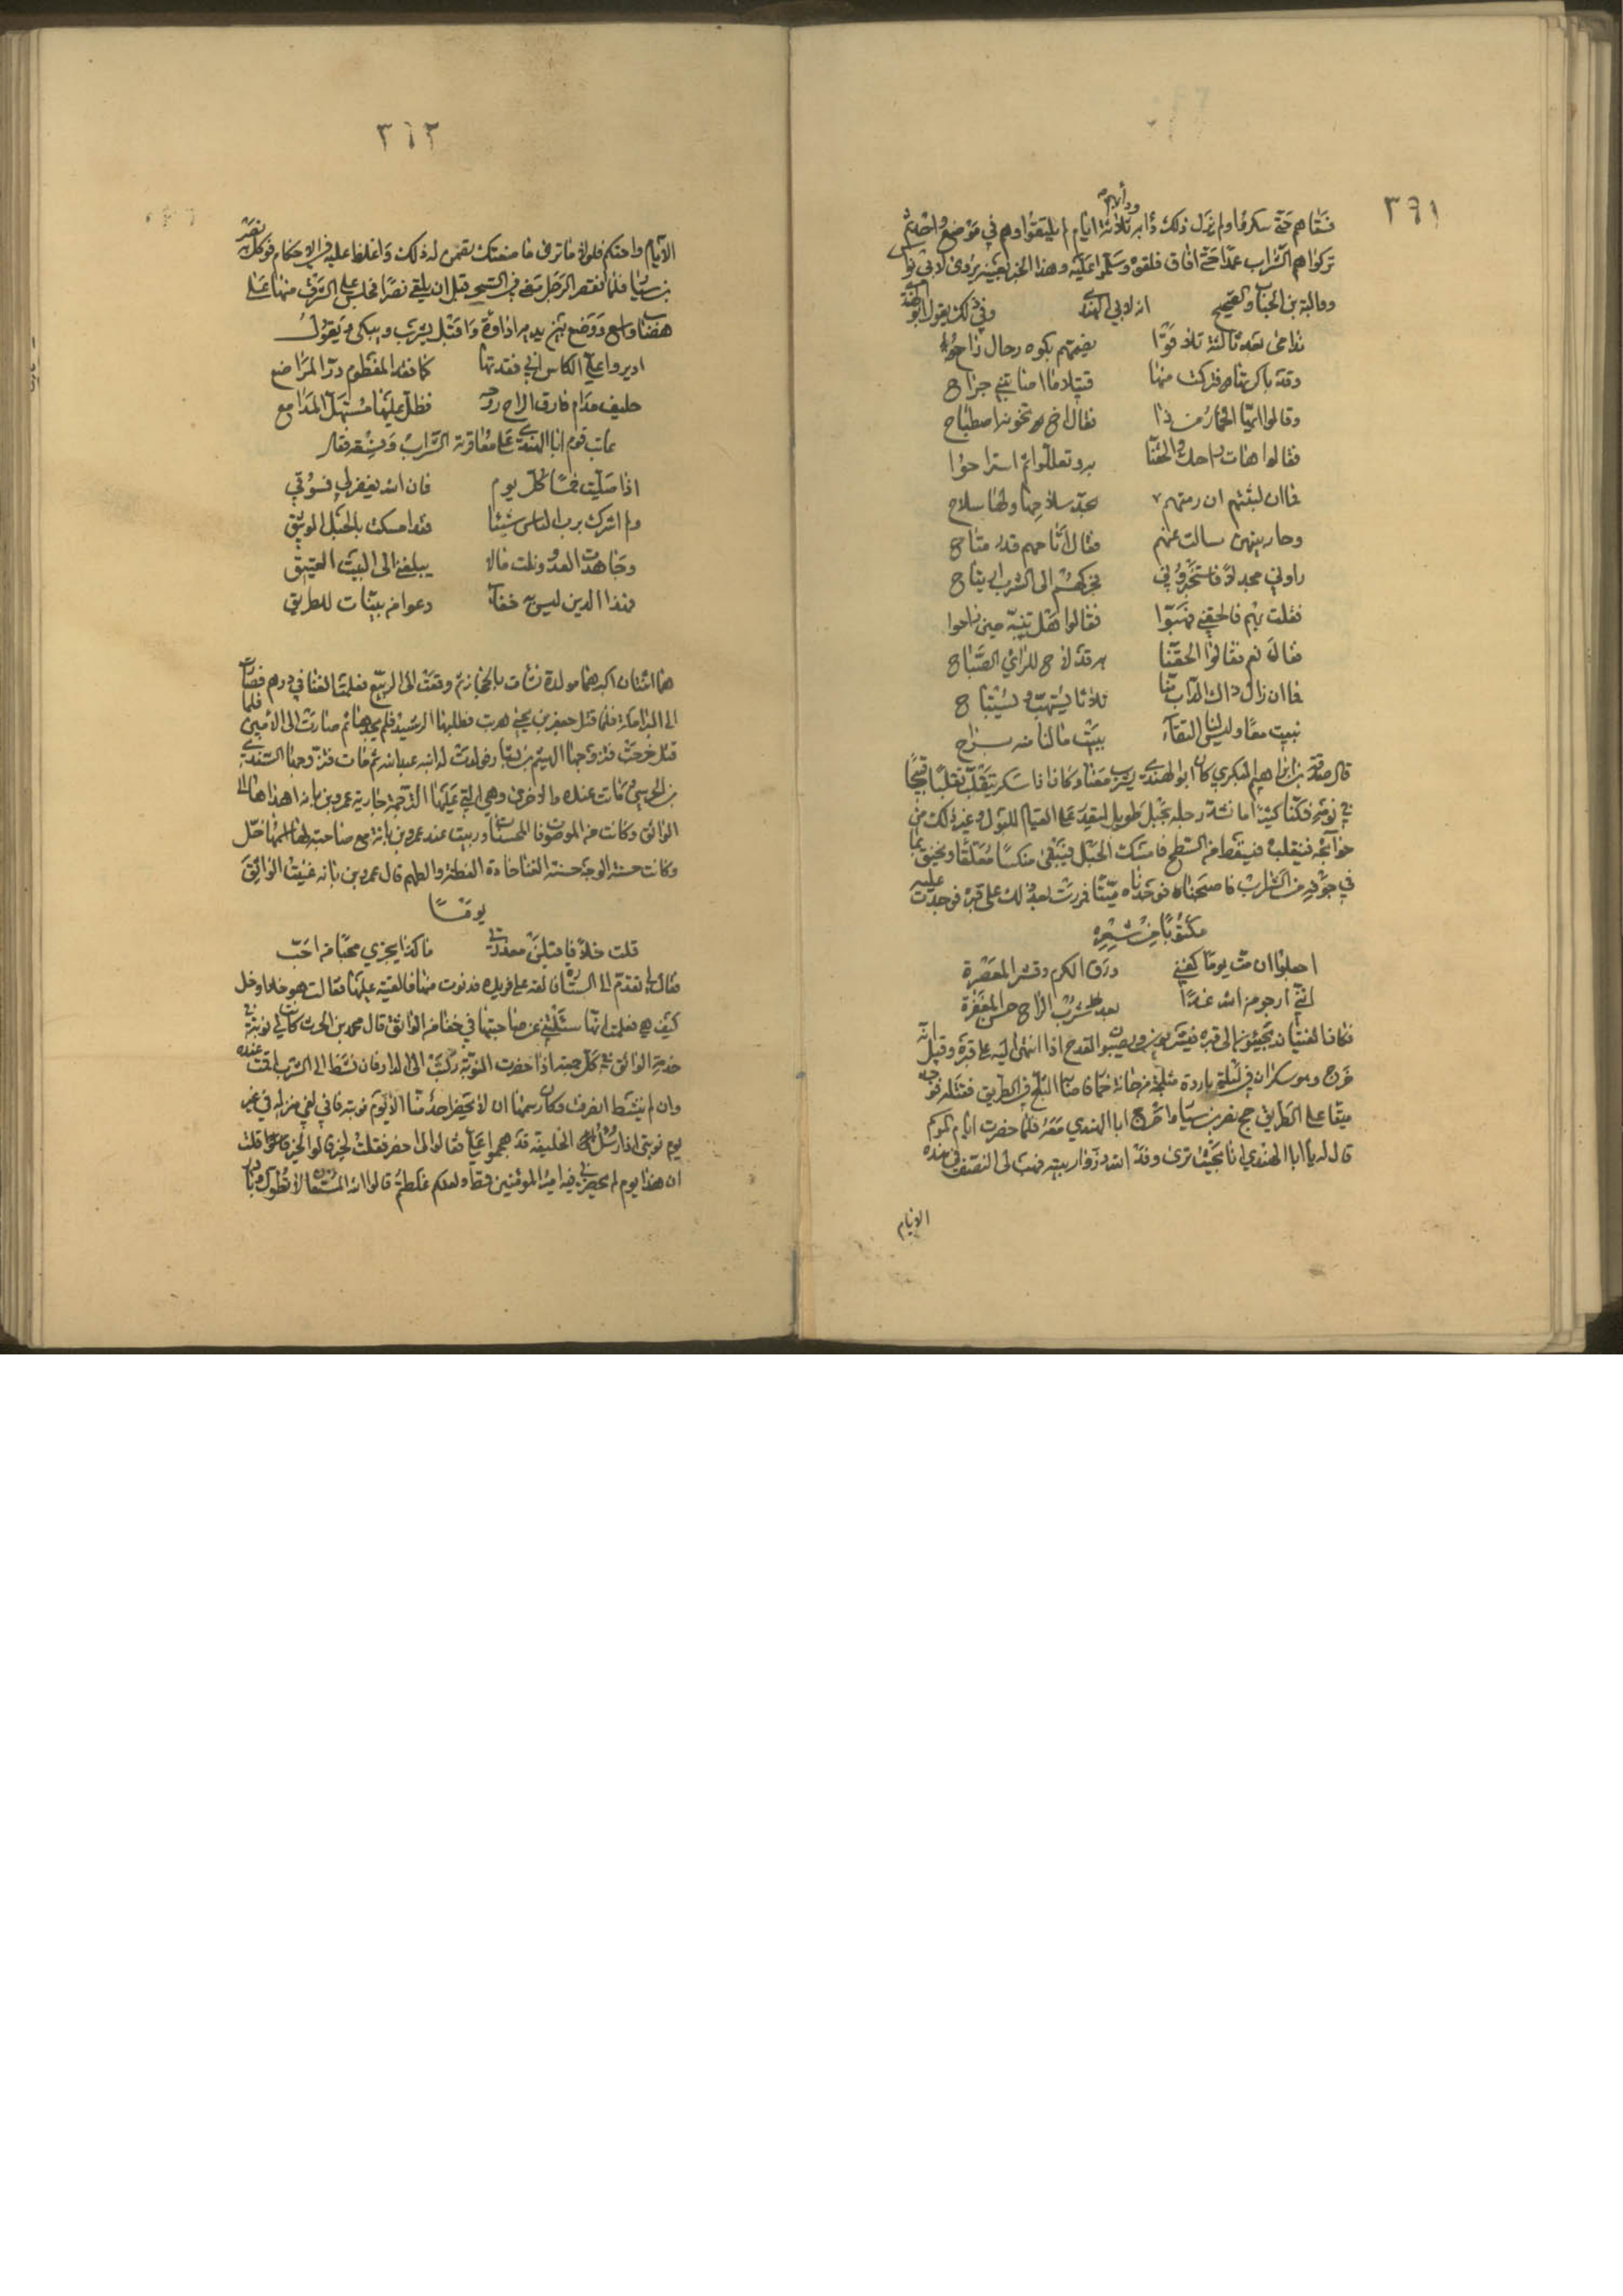 ٣٦١
ودأبهم
فسقاهم حتى سكروا ولم يزل ذلك دأبه ثلاثة ايام لم يلتقوا وهم في موضع واحد ثم
تركوا هم الشراب عمدا حتى افاق فلقوه وسلموا عليه وهذا الخبر بعينه يروى لابي نواس
ووالبة بن الحباب والصحيح انه لابي الهندي وفي ذلك يقول ابو الهندي
ندامى بعد ثالثة تلاقوا يضمهم بكوه رحال راح
وقد باكرتها فتركت منها قتيلا ما اصابتني جراح
وقالوا ايها الخمار من ذا فقال اخ تخونه اصطباح
فقالوا هات راحك والحقنا به وتعللوا ثم استراحوا
فما ان لبثتهم ان رمتهم بحد سلاحها ولها سلاح
وحان بينهن سالت عنهم فقال اتاحهم قدر متاح
راوني مجدلا فاستخبروني فحركهم الى الشرب ارتياح
فقلت بهم فالحقني فهبوا فقالوا هل تنبه حين راحوا
فقال نعم فقالوا الحقنا به قد لاح للرائي الصباح
فما ان زال ذاك الداب منا ثلاثا يستهب ويستباح
نبيت معا وليس لنا التقاء ببيت ما لنا منه براح
قال صدقة بن ابراهيم البكري كان ابو الهندي يشرب معنا وكان اذا سكر يتقلب تقلبا قبيحا
في نومه فكنا كثيرا ما نشد رجله بحبل طويل ليقدر على القيام للبول وغير ذلك من
حوائجه فتقلب فسقط من السطح فامسكت الحبل فبقى منكسا معلقا وتخنق بما
في جوفه من الشراب فاصبحناه فوجدناه ميتا فمررت بعد ذلك على قبره فوجدت عليه
مكتوبا من شعره
اجعلوا ان مت يوما كفني ورق الكرم وقشر المعصرة
انني ارجو من الله غدا بعد شرب الراح حسن المغفرة
فكان الفتيان يجيئون الى قبره فيشربون ويصبوا القدح اذا انتهى اليه على قبره وقيل انه
خرج وهو سكران في ليلة باردة مثلجة من حانة خمار فاصابه الثلج في الطريق فقتله فوجد
ميتا على الطريق حج نصر بن سيار واخرج ابا الهندي معه فلما حضرت ايام الموسم
قال له يا ابا الهندي انا بحيث ترى وفد الله وزوار بيته فهب لي النبيذ في هذه
الايام
٣٦٢
الايام واحتكم علي فلولا ما ترى ما منعتك فضمن له ذلك واغلظ عليه في الاحكام فوكل نصر
بن سيار فلما انقضى الاجل مضى في السحر قبل ان يلقى نصرا فجلس على اشرف منها على
هضبا واسع ووضع بين يديه اداوة واقبل يشرب ويبكي ويقول
اديروا علي الكاس اني فقدتها كما فقد المفطوم در المراضع
حليف مدام فارق الراح روحه فظل عليها مستهل المدامع
عاتب قوم ابا الهندي على معاقرة الشراب وفسقه فقال
اذا صليت خمسا كل يوم فان الله يغفر لي فسوقي
ولم اشرك برب الناس شيئا فقد امسكت بالحبل الوثيق
وجاهدت العدو ونلت مالا يبلغني الى البيت العتيق
فهذا الدين ليس به خفاء دعوا من بنيات للطريق
هما اثنتان اكبرهما مولدة نشات بالحجاز ثم وقعت الى الربيع فعلمت الغنا في دورهم فصارت
الى البرامكة فلما قتل جعفر بن يحيى هربت فطلبها الرشيد فلم يجدها ثم صارت الى الامين فلما
قتل خرجت فتزوجها الهيثم بن فولدت له ابنه عبد الله ثم مات فتزوجها السندي
بن الحرسي وماتت عنده والاخرى وهي التي عليها الترجمة جارية عمرو بن بانه اهداها الى
الواثق وكانت من الموصوفات المحسنات وربيت عند عمرو بن بانه مع صاحبة لها اسمها خل
وكانت حسنة الوجه حسنة الغنا حادة الفطنة والفهم قال عمرو بن بانه غنيت الواثق
يوما
قلت خلا فاقبلي معذرتي ما كذا يجزي محبا من احب
فقال لي تقدم الى الستارة فالقه على فريده فدنوت منها فالقيته عليها فقالت هو خل او خل
كيف هو فعلمت انها سئلتني عن صاحبتها في خفا من الواثق قال محمد بن الحرث كانت لي نوبة في
خدمة الواثق في كل جمعة اذا حضرت النوبة ركبت الى الدار فان نشط الى الشرب اقمت عنده
وان لم ينشط انصرفت وكان رسمنا ان لا يحضر احد منا الا يوم نوبته فاني لفي منزلي في غير
يوم نوبتي اذا رسل الخليفة قد هجموا علي فقالوا لي احضر فقلت لخير قالوا لخير قلت
ان هذا يوم لم يحضرني فيه امير المؤمنين قط ولعلكم غلطتم قالوا الله المستعان لا تطول وبادر